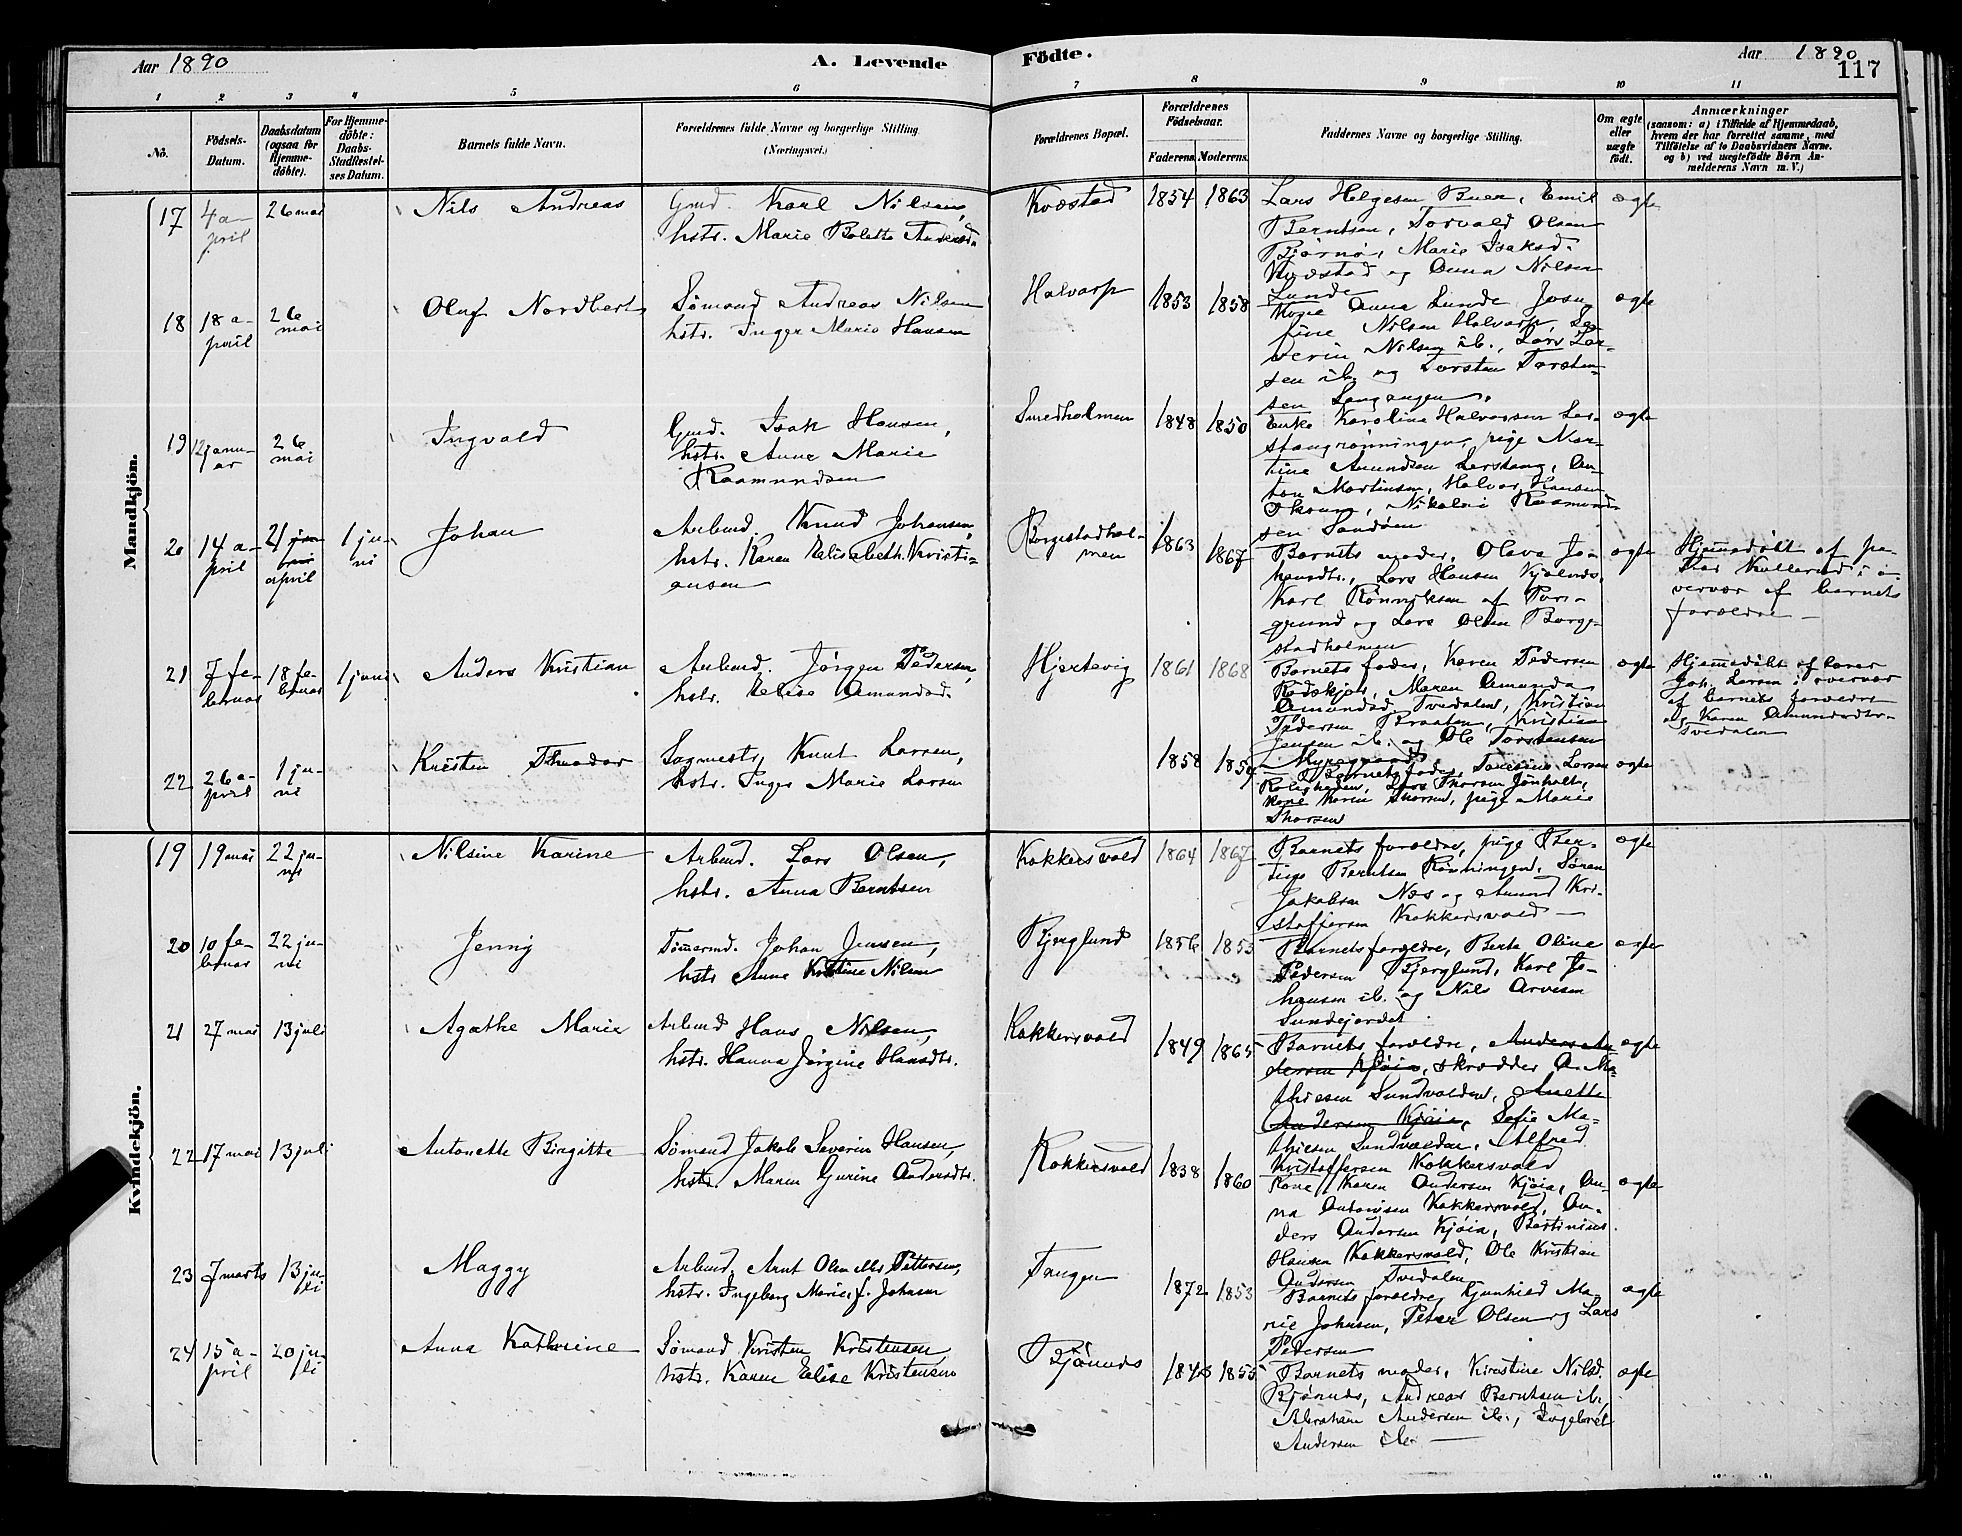 Aar 1890
A. Levende
Födte.
Aar 1890
117
1 2 3 4 5 6 7 8 9 10 11
No.
Födsels-
Datum.
Daabsdatum
(ogsaa for
Hjemme-
döbte).
For Hjemme-
döbte:
Daabs-
Stadfæstel-
ses Datum.
Barnets fulde Navn.
Forældrenes fulde Navne og borgerlige Stilling.
(Næringsvei.)
Forældrenes Bopæl.
Forældrenes
Födselsaar.
Faderens Moderens
Faddernes Navne og borgerlige Stilling.
Om ægte
eller
uægte
födt.
Anmærkninger
(saasom: a) i Tilfælde af Hjemmedaab,
hvem der har forrettet samme, med
Tilföielse af to Daabsvidners Navne.
og b) ved uægtefödte Börn An-
melderens Navn m. V.)
Mandkjön.
17 4 a-
pril
26 mai
Nils Andreas
Gmd. Karl Nilsen,
hstr. Marie Bolette Andersd.
Kvæstad
1854 1863
Lars Helgesen Buer, Emil
Berntsen, Torvald Olsen
Bjørnø, Marie Isaksd.
Kvæstad og Anna Nilsen
Lunde
ægte
18 18 a-
pril
26
mai
Oluf Nordbert
Sømand Andreas Nilsen
hstr. Inger Marie Hansen
Halvarp
1853 1858
Kone Anna Lunde, Jose-
fine Nilsen Halvarp, Se-
verin Nilsen ib., Lars Lar-
sen ib. og Torsten Torsten-
sen Langangen.
ægte
19 12 janu-
ar
26
mai
Ingvald
Gmd. Isak Hansen,
hstr. Anne Marie
Raamundsen
Smedholmen
1848 1850
Enke Karoline Halvorsen Ler-
stangrønningen, pige Mar-
tine Amundsen Lerstang, An-
ton Martinsen, Halvor Hansen
Oksum, Nikolai Raamund-
sen Sandøen
ægte
20 14 a-
pril
21
april
1 ju-
ni
Johan
Arbmd. Knud Johansen,
hstr. Karen Elisabeth Kristi-
ansen
Borgestadhol-
men
1863 1867
Barnets moder, Olava Jo-
hansdtr., Lars Hansen Kjølnes,
Karl Rønniksen af Pors-
grund og Lars Olsen Borge-
stadholmen
ægte
Hjemmedøbt af pa-
stor Kullerud i o-
vervær af barnets
forældre —
21 7 fe-
bruar
18 fe-
bruar
1 juni
Anders Kristian
Arbmd. Jørgen Pedersen,
hstr. Elise Amundsd.
Hjertevig
1861 1868
Barnets fader, Karen Pedersen
Rødskjør, Maren Amunda
Amundsd. Tvedalen, Kristian
Pedersen Braaten, Kristian
Jensen ib. og Ole Torstensen
Myregaard
ægte
Hjemmedøbt af lærer
Joh. Larsen i overvær
af barnets forældre
og Karen Amundsdtr.
Tvedalen
22 26 a-
pril
1 ju-
ni
Kristen Theodor
Sagmestr. Knut Larsen,
hstr. Inger Marie Larsen
1858 1859
Barnets fader, Larsen
Roligheden, Lars Thorsen Jønholt,
kone Karen Thorsen, pige Marie
Thorsen
ægte
Kvindekjön.
19 19 mai
22 ju-
ni
Nilsine Karine
Arbmd. Lars Olsen,
hstr. Anna Berntsen
Kokkersvold
1864 1867
Barnets forældre, pige Ber-
tine Berntsen Rønningen, Søren
Jakobsen Næs og Amund Kri-
stoffersen Kokkersvold —
ægte
20 10 fe-
bruar
22 ju-
ni
Jenny
Tømermd. Johan Jensen,
hstr. Anne Kristine Nilsen
Bjerglund
1856 1853
Barnets forældre, Berte Oline
Pedersen Bjerglund, Karl Jo-
hansen ib. og Nils Arvesen
Sundejordet
ægte
21 27 mai 13 juli
Agathe Marie
Arbmd Hans Nilsen,
hstr. Hanna Jørgine Hansdtr.
Kokkersvold
1849 1865
Barnets forældre, Anders An-
dersen Kjøia, skrædder A. Ma-
thiesen Sundvolden, Anette
Andersen Kjøia, Sofie Ma-
thiesen Sundvolden, Alfred
Kristoffersen Kokkersvold
ægte
22 17 mai 13 juli
Antonette Birgitte
Sømand Jakob Severin Hansen,
hstr. Maren Gurine Andersdtr.
Kokkersvold
1838 1860
Kone Karen Andersen Kjøia, An-
na Antonisen Kokkersvold, An-
ders Andersen Kjøia, Bertinius
Hansen Kokkersvold, Ole Kristian
Andersen Tvedalen
ægte
23 7 marts 13 ju-
li
Maggy
Arbmd. Arnt Olen Pettersen,
hstr. Ingeborg Marie f. Johnsen
Tangen
1872 1853
Barnets forældre, Gunhild Ma-
rie Johnsen, Peter Olsen og Lars
Pedersen
ægte
24 15 a-
pril
20 ju-
li
Anna Kathrine
Sømand Kristen Kristensen
hstr. Karen Elise Kristensen
Bjønnes
1845 1855
Barnets moder, Kirstine Nilsd.
Bjønnes, Andreas Berntsen ib.,
Abraham Andersen ib., Ingebret
Andersen ib. —
ægte